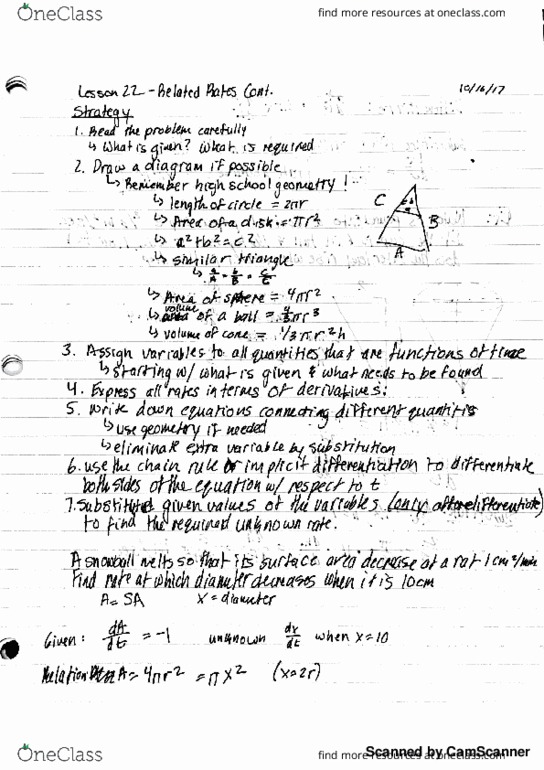 OneClass
find more resources at oneclass.com
Lesson 22 - Related Rates Cont.
10/16/17
Strategy
1. Read the problem carefully
↳ What is given? What is required
2. Draw a diagram if possible
↳ Remember high school geometry!
↳ length of circle = 2πr
↳ Area of a disk = πr²
↳ a²+b²=c²
↳ similar triangle
↳ a/A = b/B = c/C
C
B
A
↳ Area of sphere = 4πr²
↳ volume of a ball = 4/3πr³
↳ volume of cone = 1/3πr²h
3. Assign variables to all quantities that are functions of time
↳ starting w/ what is given & what needs to be found
4. Express all rates in terms of derivatives:
5. Write down equations connecting different quantitis
↳ use geometry if needed
↳ eliminate extra variable by substitution
6. use the chain rule or implicit differentiation to differentiate
both sides of the equation w/ respect to t
7. Substitute given values of the variables (only after differentiate)
to find the required unknown rate.
A snowball melts so that its surface area decrease at a rat 1cm²/min
Find rate at which diameter decreases when it is 10cm
A = SA X = diameter
Given: dA/dt = -1 unknown dx/dt when x=10
Relation A = 4πr² = πx² (x=2r)
OneClass
find more resources at oneclass.com
Scanned by CamScanner